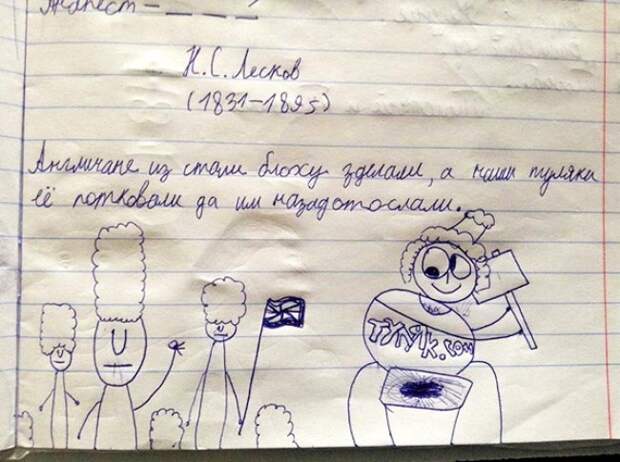 Анапест – _ _ _
Н. С. Лесков
(1831–1895)
Англичане из стали блоху зделали, а наши туляки
её потковали да им назадотослали.
ТУЛЯК.com